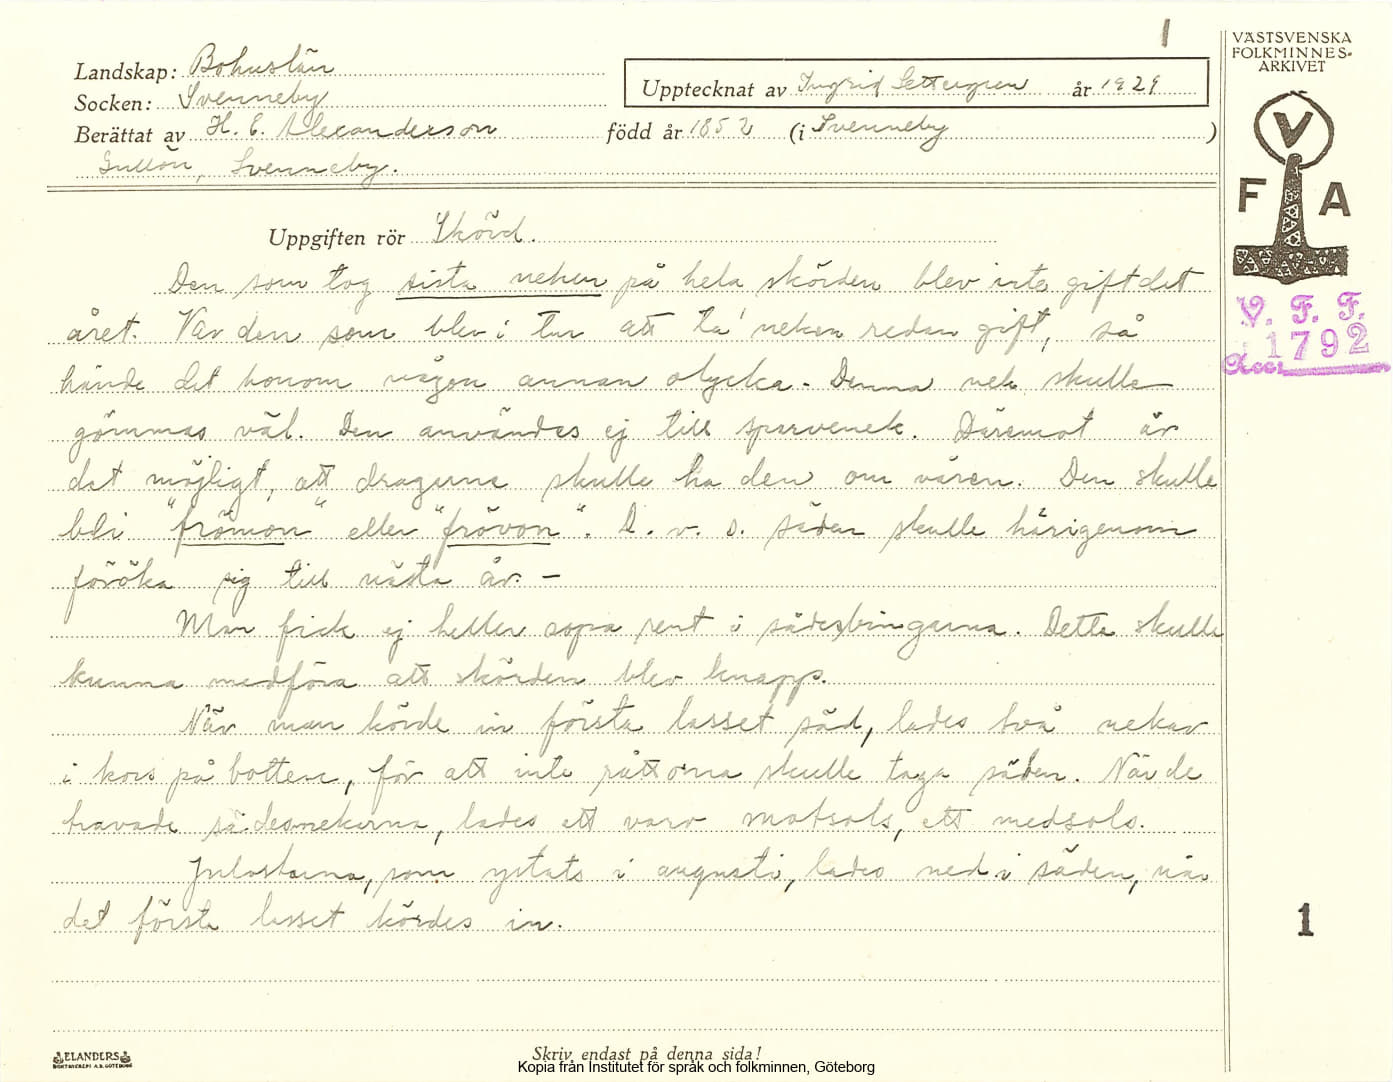 1
VÄSTSVENSKA
FOLKMINNES-
ARKIVET
Landskap: Bohuslän
Socken: Svenneby
Upptecknat av Ingrid Settergren år 1929
Berättat av H. E. Alexanderson född år 1852 (i Svenneby )
Gullön, Svenneby.
V
F A
Uppgiften rör Skörd.
V. F. F.
Acc. 1792
Den som tog sista neken på hela skörden blev inte gift det
året. Var den som blev i tur att ta' neken redan gift, så
hände det honom någon annan olycka. Denna nek skulle
gömmas väl. Den användes ej till sparvenek. Däremot är
det möjligt, att dragarna skulle ha den om våren. Den skulle
bli "frömon" eller "frövon". D. v. s. säden skulle härigenom
föröka sig till nästa år. –
Man fick ej heller sopa rent i sädesbingarna. Detta skulle
kunna medföra att skörden blev knapp.
När man körde in första lasset säd, lades två nekar
i kors på botten, för att inte råttorna skulle taga säden. När de
travade sädesnekarna, lades ett varv motsols, ett medsols.
Julostarna, som ystats i augusti, lades ned i säden, när
det första lasset kördes in.
1
ELANDERS
BOKTRYCKERI A.B. GÖTEBORG
Skriv endast på denna sida!
Kopia från Institutet för språk och folkminnen, Göteborg